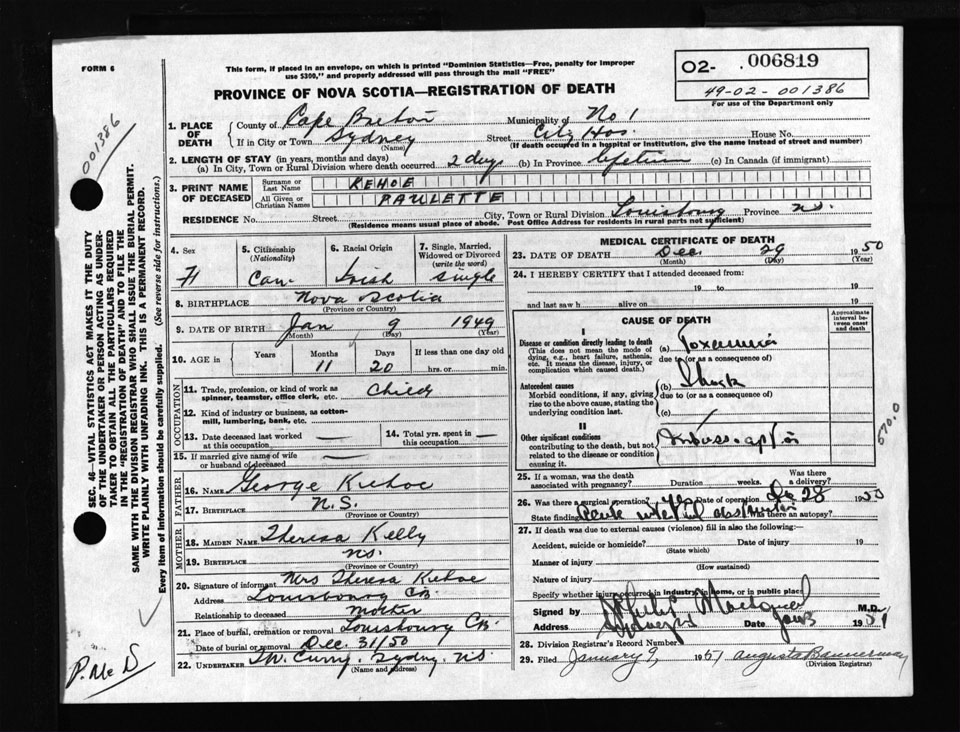 FORM 6
This form, if placed in an envelope, on which is printed "Dominion Statistics—Free, penalty for improper
use $300," and properly addressed will pass through the mail "FREE"
O2- .006819
49-02-001386
For use of the Department only
PROVINCE OF NOVA SCOTIA—REGISTRATION OF DEATH
001386
1. PLACE OF DEATH County of Cape Breton Municipality of No 1
If in City or Town Sydney (Name) Street City Hos. House No.
(If death occurred in a hospital or institution, give the name instead of street and number)
2. LENGTH OF STAY (in years, months and days)
(a) In City, Town or Rural Division where death occurred 2 days (b) In Province lifetime (c) In Canada (if immigrant)
3. PRINT NAME OF DECEASED Surname or Last Name KEHOE
All Given or Christian Names PAULETTE
RESIDENCE No. Street City, Town or Rural Division Louisbourg Province N.S.
(Residence means usual place of abode. Post Office Address for residents in rural parts not sufficient)
4. Sex F
5. Citizenship (Nationality) Can.
6. Racial Origin Irish
7. Single, Married, Widowed or Divorced (write the word) Single
8. BIRTHPLACE Nova Scotia
(Province or Country)
9. DATE OF BIRTH Jan 9 1949
(Month) (Day) (Year)
10. AGE in Years Months 11 Days 20 If less than one day old hrs. or min.
OCCUPATION
11. Trade, profession, or kind of work as spinner, teamster, office clerk, etc. Child
12. Kind of industry or business, as cotton-mill, lumbering, bank, etc.
13. Date deceased last worked at this occupation —
14. Total yrs. spent in this occupation —
15. If married give name of wife or husband of deceased —
FATHER
16. NAME George Kehoe
17. BIRTHPLACE N.S.
(Province or Country)
MOTHER
18. MAIDEN NAME Theresa Kelly
19. BIRTHPLACE N.S.
(Province or Country)
20. Signature of informant Mrs Theresa Kehoe
Address Louisbourg C.B.
Relationship to deceased Mother
21. Place of burial, cremation or removal Louisbourg C.B.
Date of burial or removal Dec. 31/50
22. UNDERTAKER Curry, Sydney, N.S.
(Name and address)
MEDICAL CERTIFICATE OF DEATH
23. DATE OF DEATH Dec. 29 1950
(Month) (Day) (Year)
24. I HEREBY CERTIFY that I attended deceased from:
19 to 19
and last saw h alive on 19
CAUSE OF DEATH
Approximate interval between onset and death
I
Disease or condition directly leading to death
(This does not mean the mode of dying, e.g., heart failure, asthenia, etc. It means the disease, injury, or complication which caused death.)
(a) Toxaemia
due to (or as a consequence of)
Antecedent causes
Morbid conditions, if any, giving rise to the above cause, stating the underlying condition last.
(b) Shock
due to (or as a consequence of)
(c)
II
Other significant conditions
contributing to the death, but not related to the disease or condition causing it.
Intussusception
570.0
25. If a woman, was the death associated with pregnancy? Duration weeks. Was there a delivery?
26. Was there a surgical operation? Yes Date of operation Dec 28 1950
State findings Acute intestinal obstruction Was there an autopsy?
27. If death was due to external causes (violence) fill in also the following:—
Accident, suicide or homicide? Date of injury 19
(State which)
Manner of injury
(How sustained)
Nature of injury
Specify whether injury occurred in industry, in home, or in public place
Signed by M.D.
Address Sydney Date Jan 3 1951
28. Division Registrar's Record Number
29. Filed January 9, 1951 Augusta Bannerman
(Division Registrar)
SEC. 46—VITAL STATISTICS ACT MAKES IT THE DUTY
OF THE UNDERTAKER OR PERSON ACTING AS UNDER-
TAKER TO OBTAIN ALL THE PARTICULARS REQUIRED
IN THE "REGISTRATION OF DEATH" AND TO FILE THE
SAME WITH THE DIVISION REGISTRAR WHO SHALL ISSUE THE BURIAL PERMIT.
WRITE PLAINLY WITH UNFADING INK. THIS IS A PERMANENT RECORD.
Every item of information should be carefully supplied. (See reverse side for instructions.)
P. Mc D